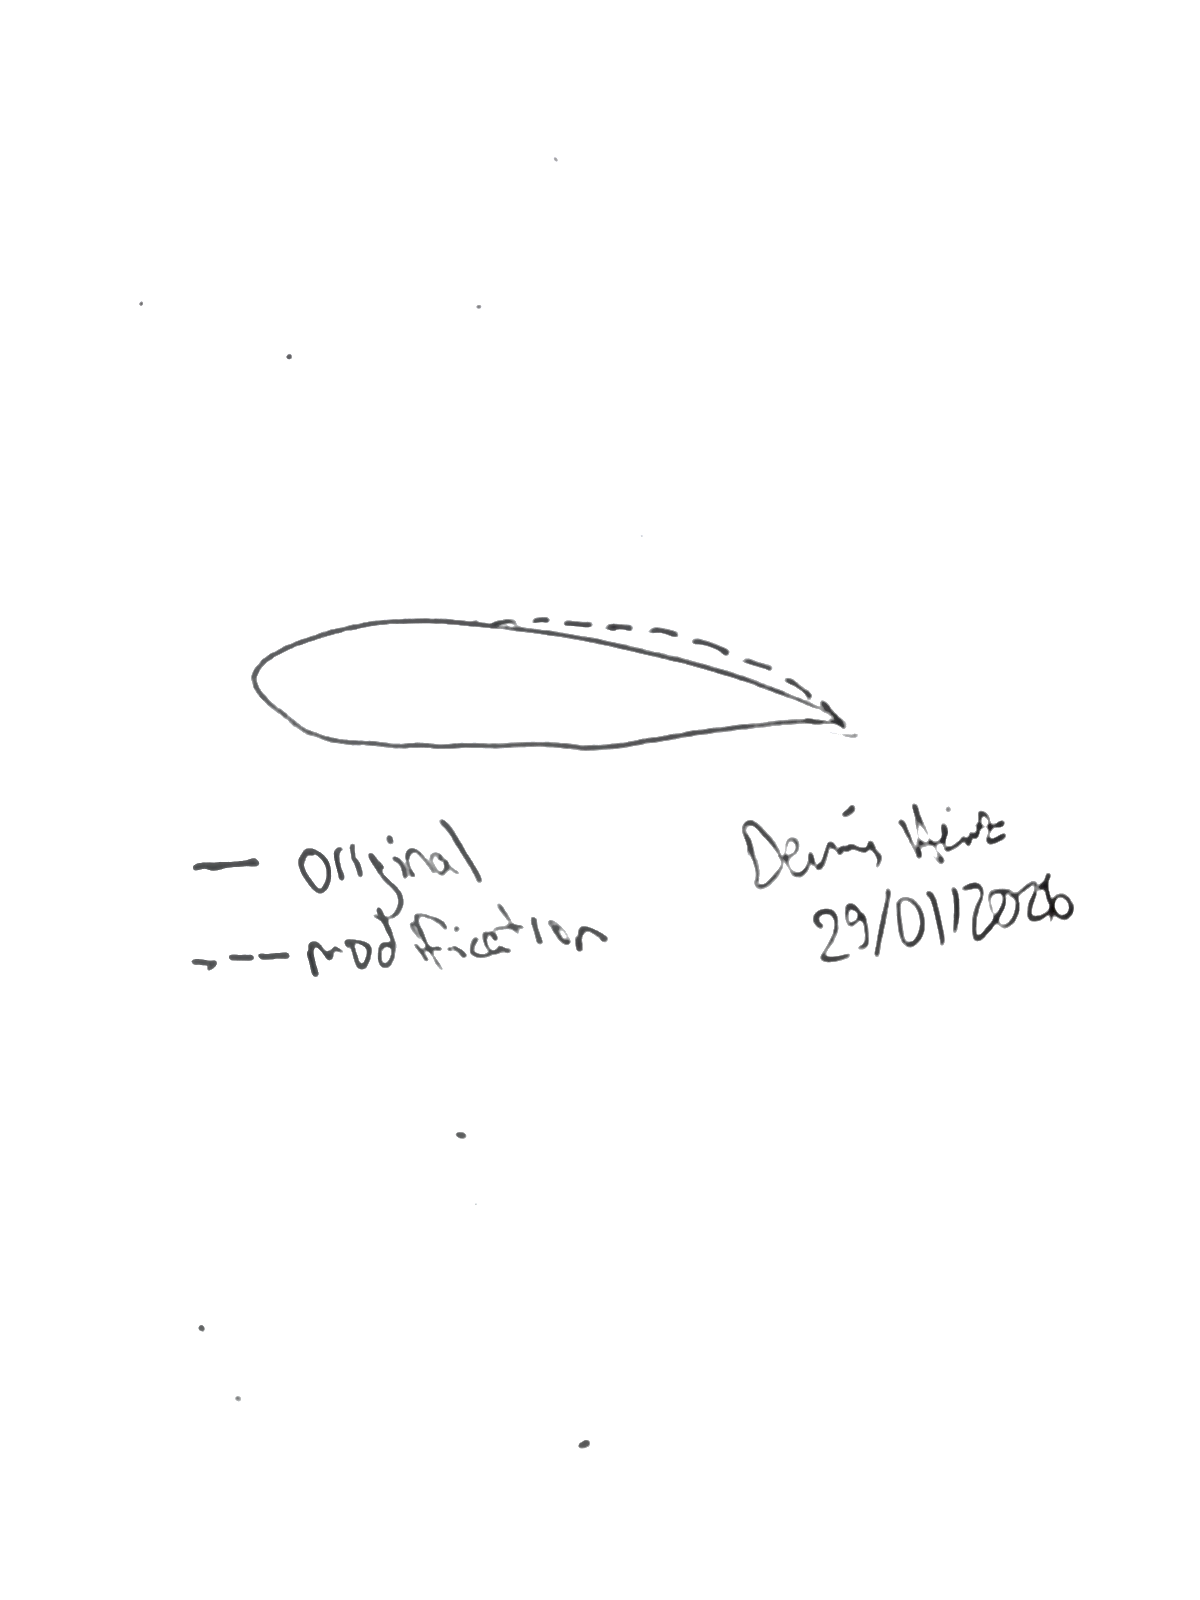 Original
modification
Denis Heinz
29/01/2026